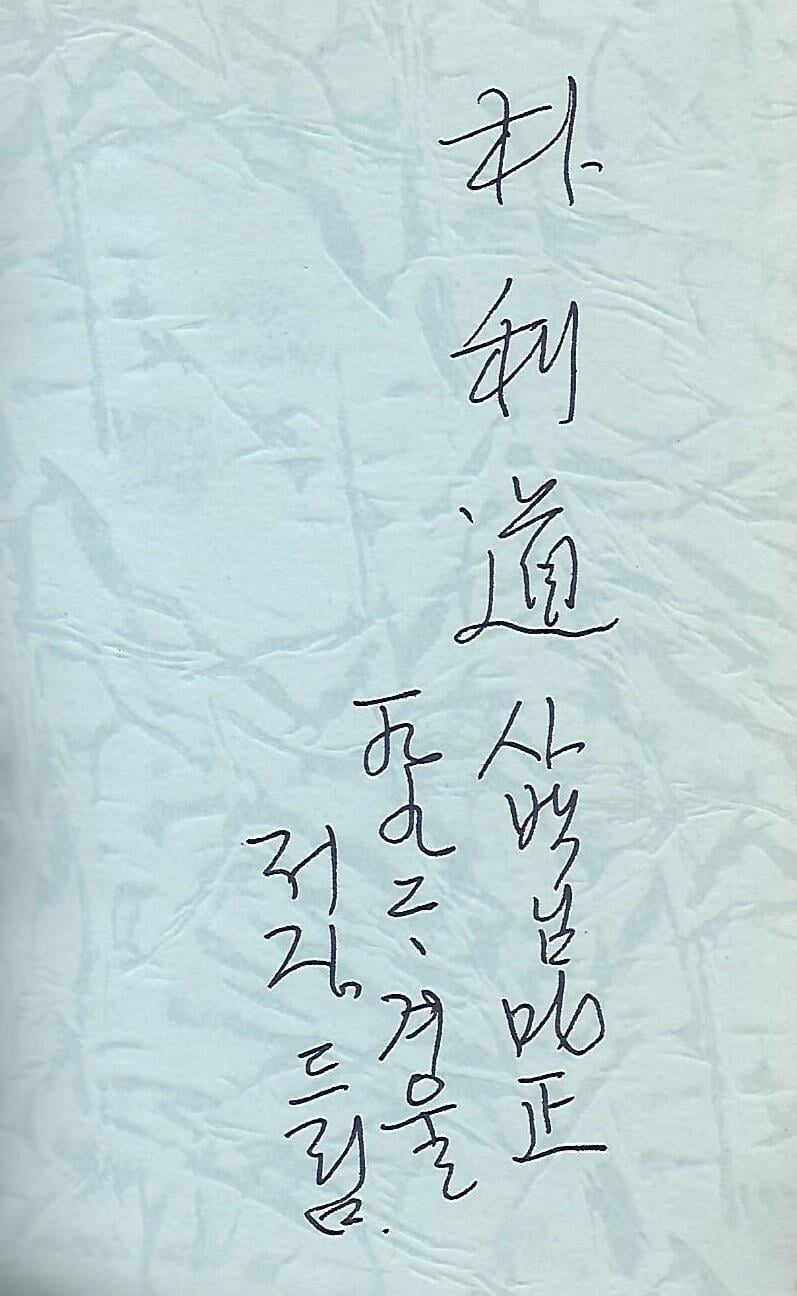 朴利道 사백님 叱正
一九九二、겨울
저자 드림.